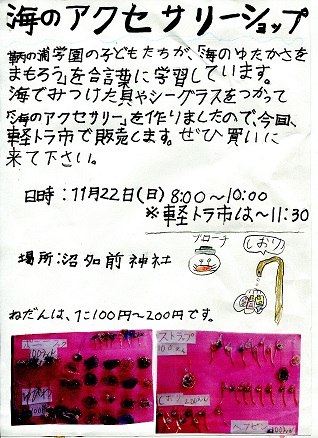 海のアクセサリーショップ
鞆の浦学園の子どもたちが、「海のゆたかさを
まもろう」を合言葉に学習しています。
海でみつけた貝やシーグラスをつかって
「海のアクセサリー」を作りましたので、今回、
軽トラ市で販売します。ぜひ買いに
来て下さい。
日時:11月22日(日) 8:00~10:00
※軽トラ市は~11:30
ブローチ
しおり
場所:沼名前神社
ねだんは、1こ100円~200円です。
ストラップ
100えん
しおり
200えん
ヘアピン
100えん
100えん